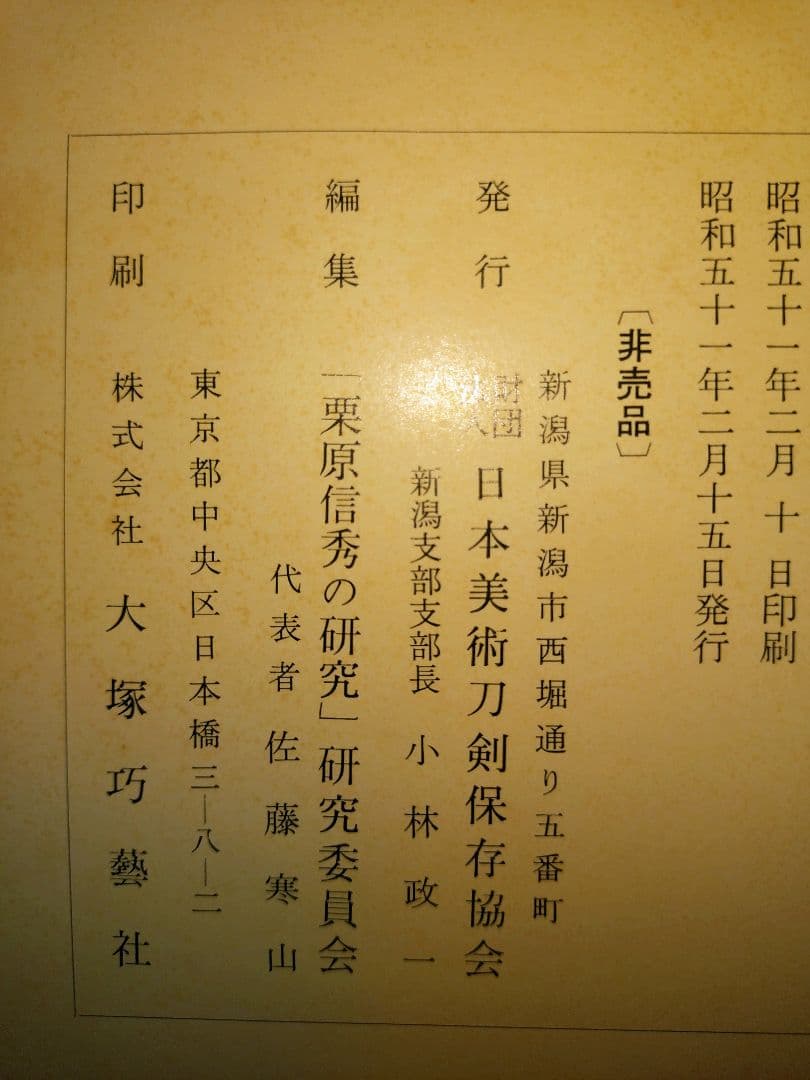 昭和五十一年二月 十 日印刷
昭和五十一年二月十五日発行
〔非売品〕
新潟県新潟市西堀通り五番町
発行 財団法人 日本美術刀剣保存協会
新潟支部支部長 小林政一
編集 「栗原信秀の研究」研究委員会
代表者 佐藤寒山
東京都中央区日本橋三―八―二
印刷 株式会社 大塚巧藝社